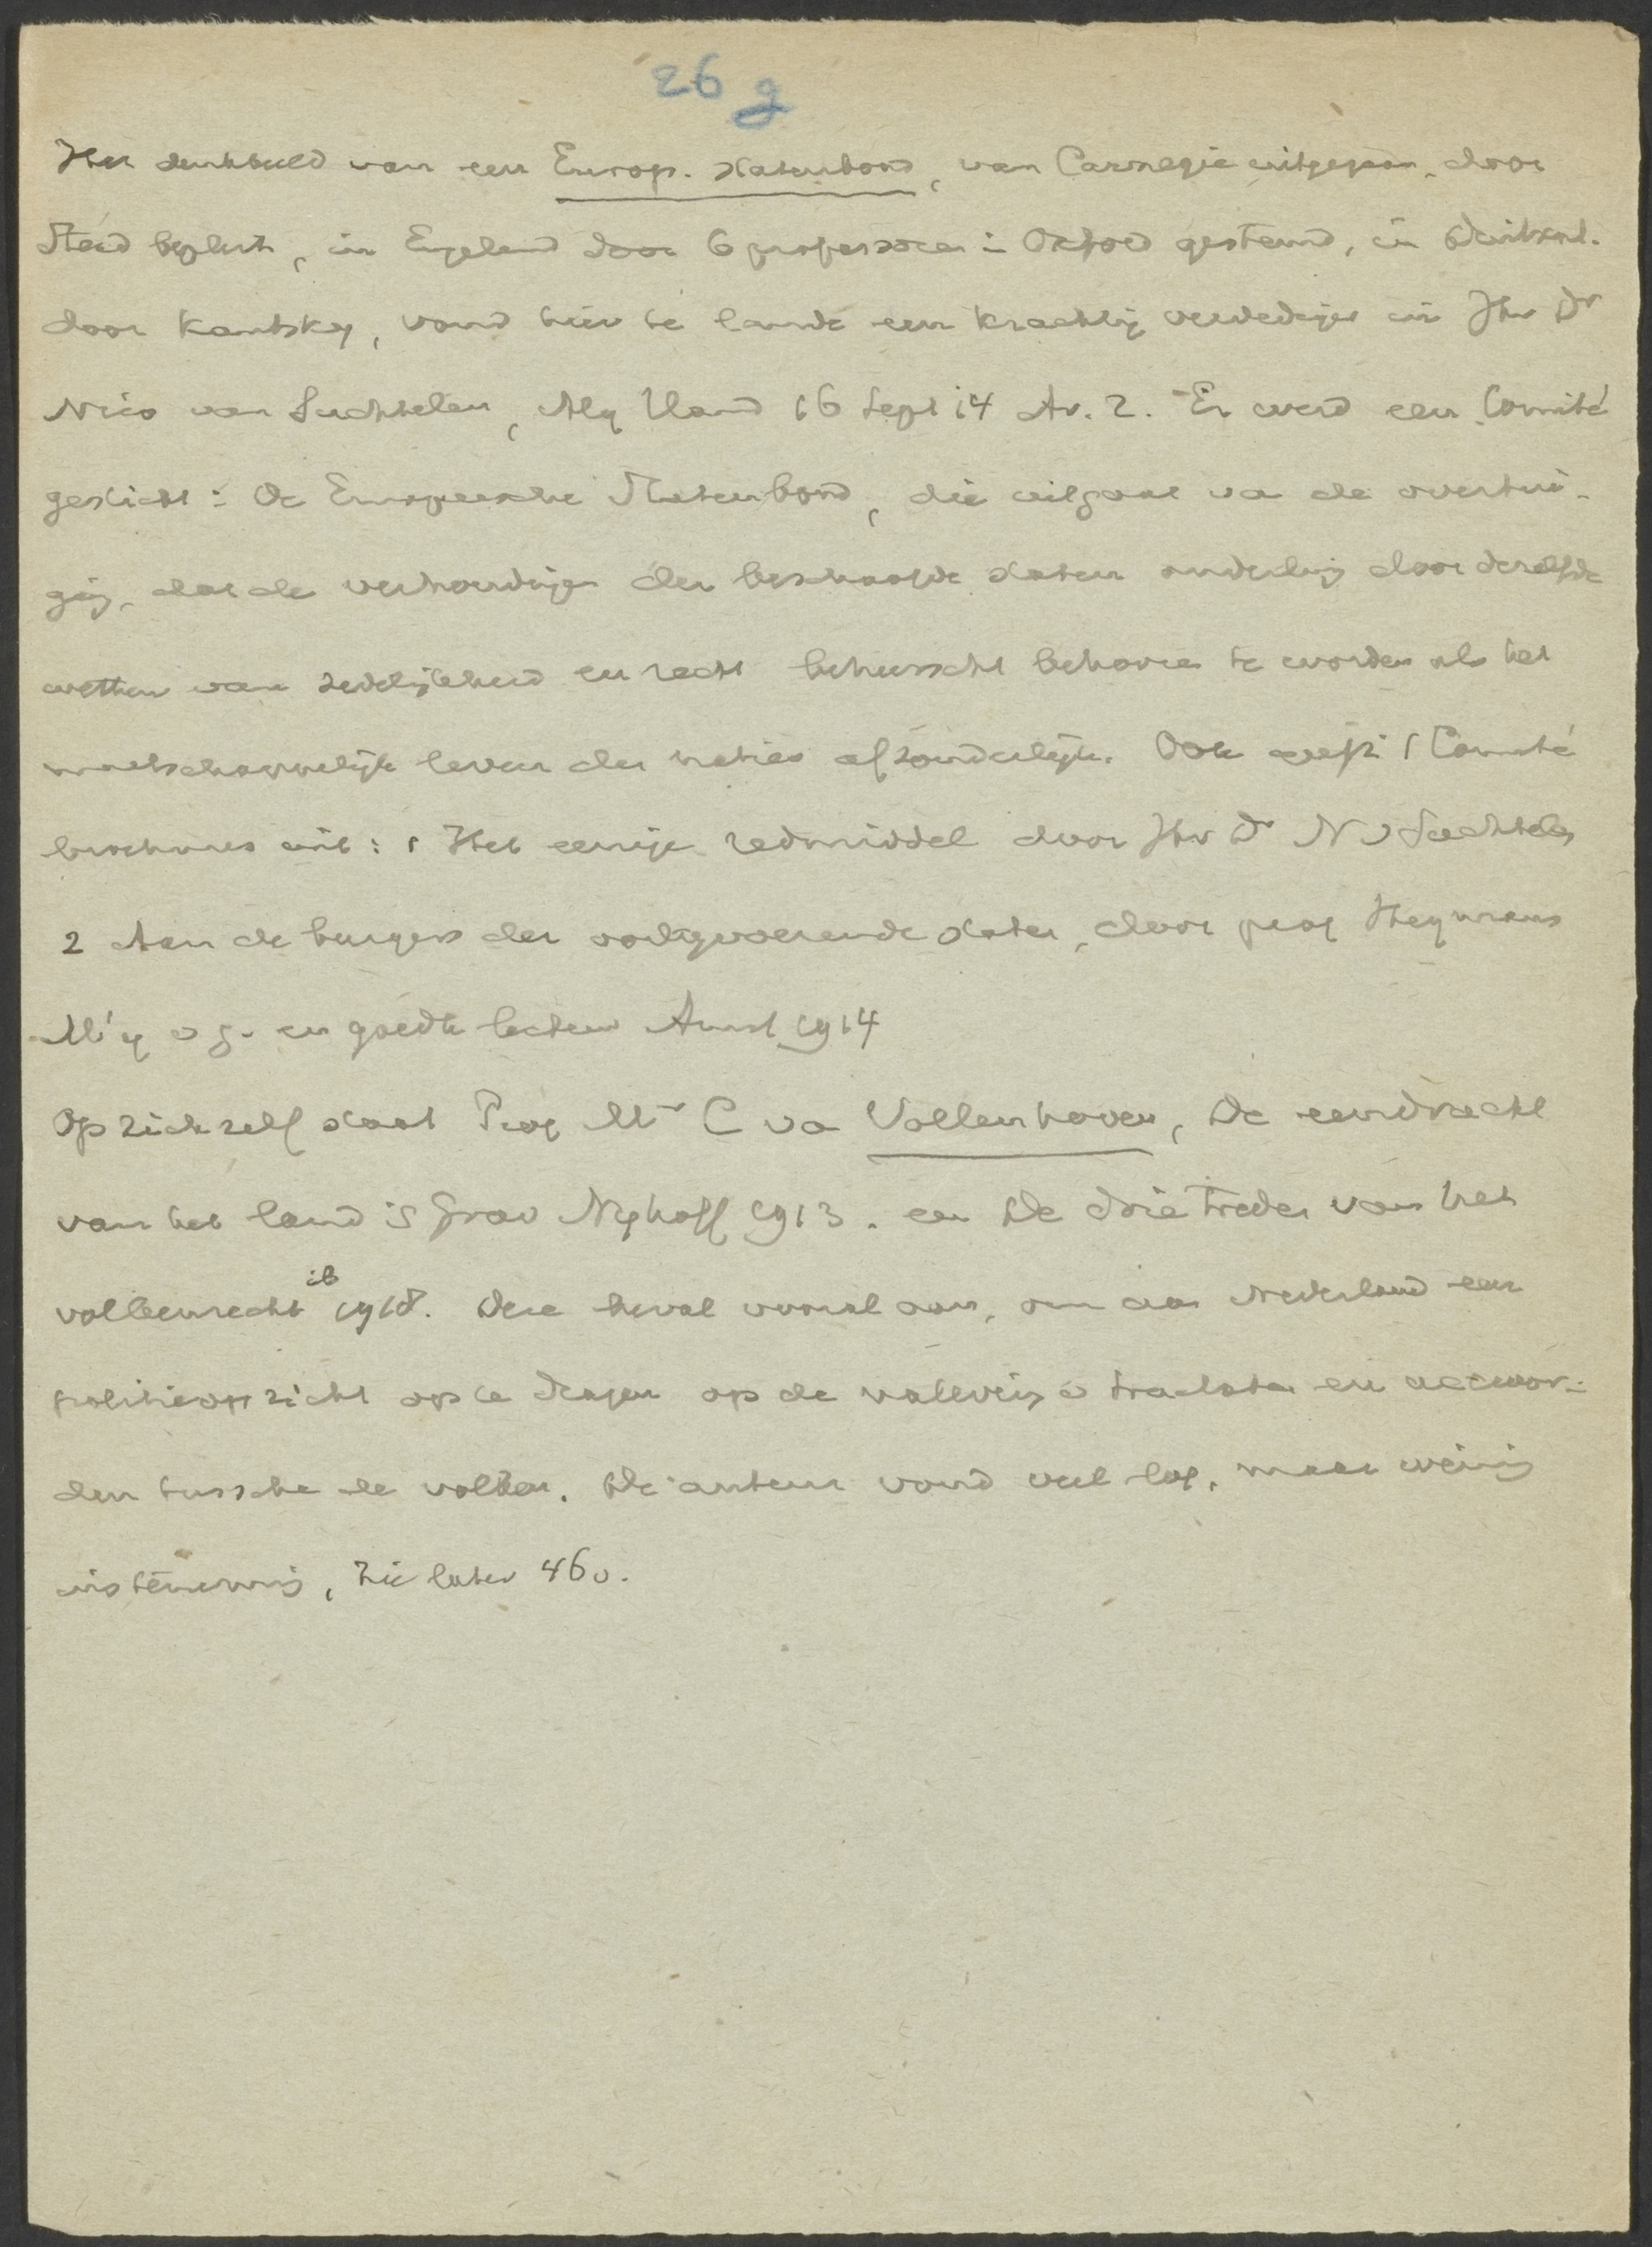 26 g
Het denkbeeld van een Europ. Statenbond, van Carnegie uitgegaan, door
Stead bepleit, in Engeland door 6 professoren in Oxford gesteund, in Duitschl.
door Kautsky, vond hier te lande een krachtig verdediger in Jhr Dr
Nico van Suchtelen, Alg Hand 16 Sept 14 Av. 2. Er werd een Comité
gesticht: De Europeesche Statenbond, die uitgaat va de overtui-
ging, dat de verhoudingen der beschaafde staten onderling door dezelfde
wetten van zedelijkheid en recht beheerscht behooren te worden als het
maatschappelijk leven der naties afzonderlijk. Ook geeft 't Comité
brochures uit: 1 Het eenige redmiddel door Jhr Dr N v Suchtelen
2 Aan de burgers der oorlogvoerende staten, door prof Heymans
Mij v g. en goedk lectuur Amst 1914
Op zich zelf staat Prof Mr C va Vollenhoven, De eendracht
van het land 's Grav Nyhoff 1913. en De drie treden van het
volkenrecht ib 1918. Deze beval vooral aan, om aan Nederland een
politieopzicht op te dragen op de naleving v tractaten en accoor-
den tussche de volken. De auteur vond veel lof, maar weinig
instemming, zie later 46v.